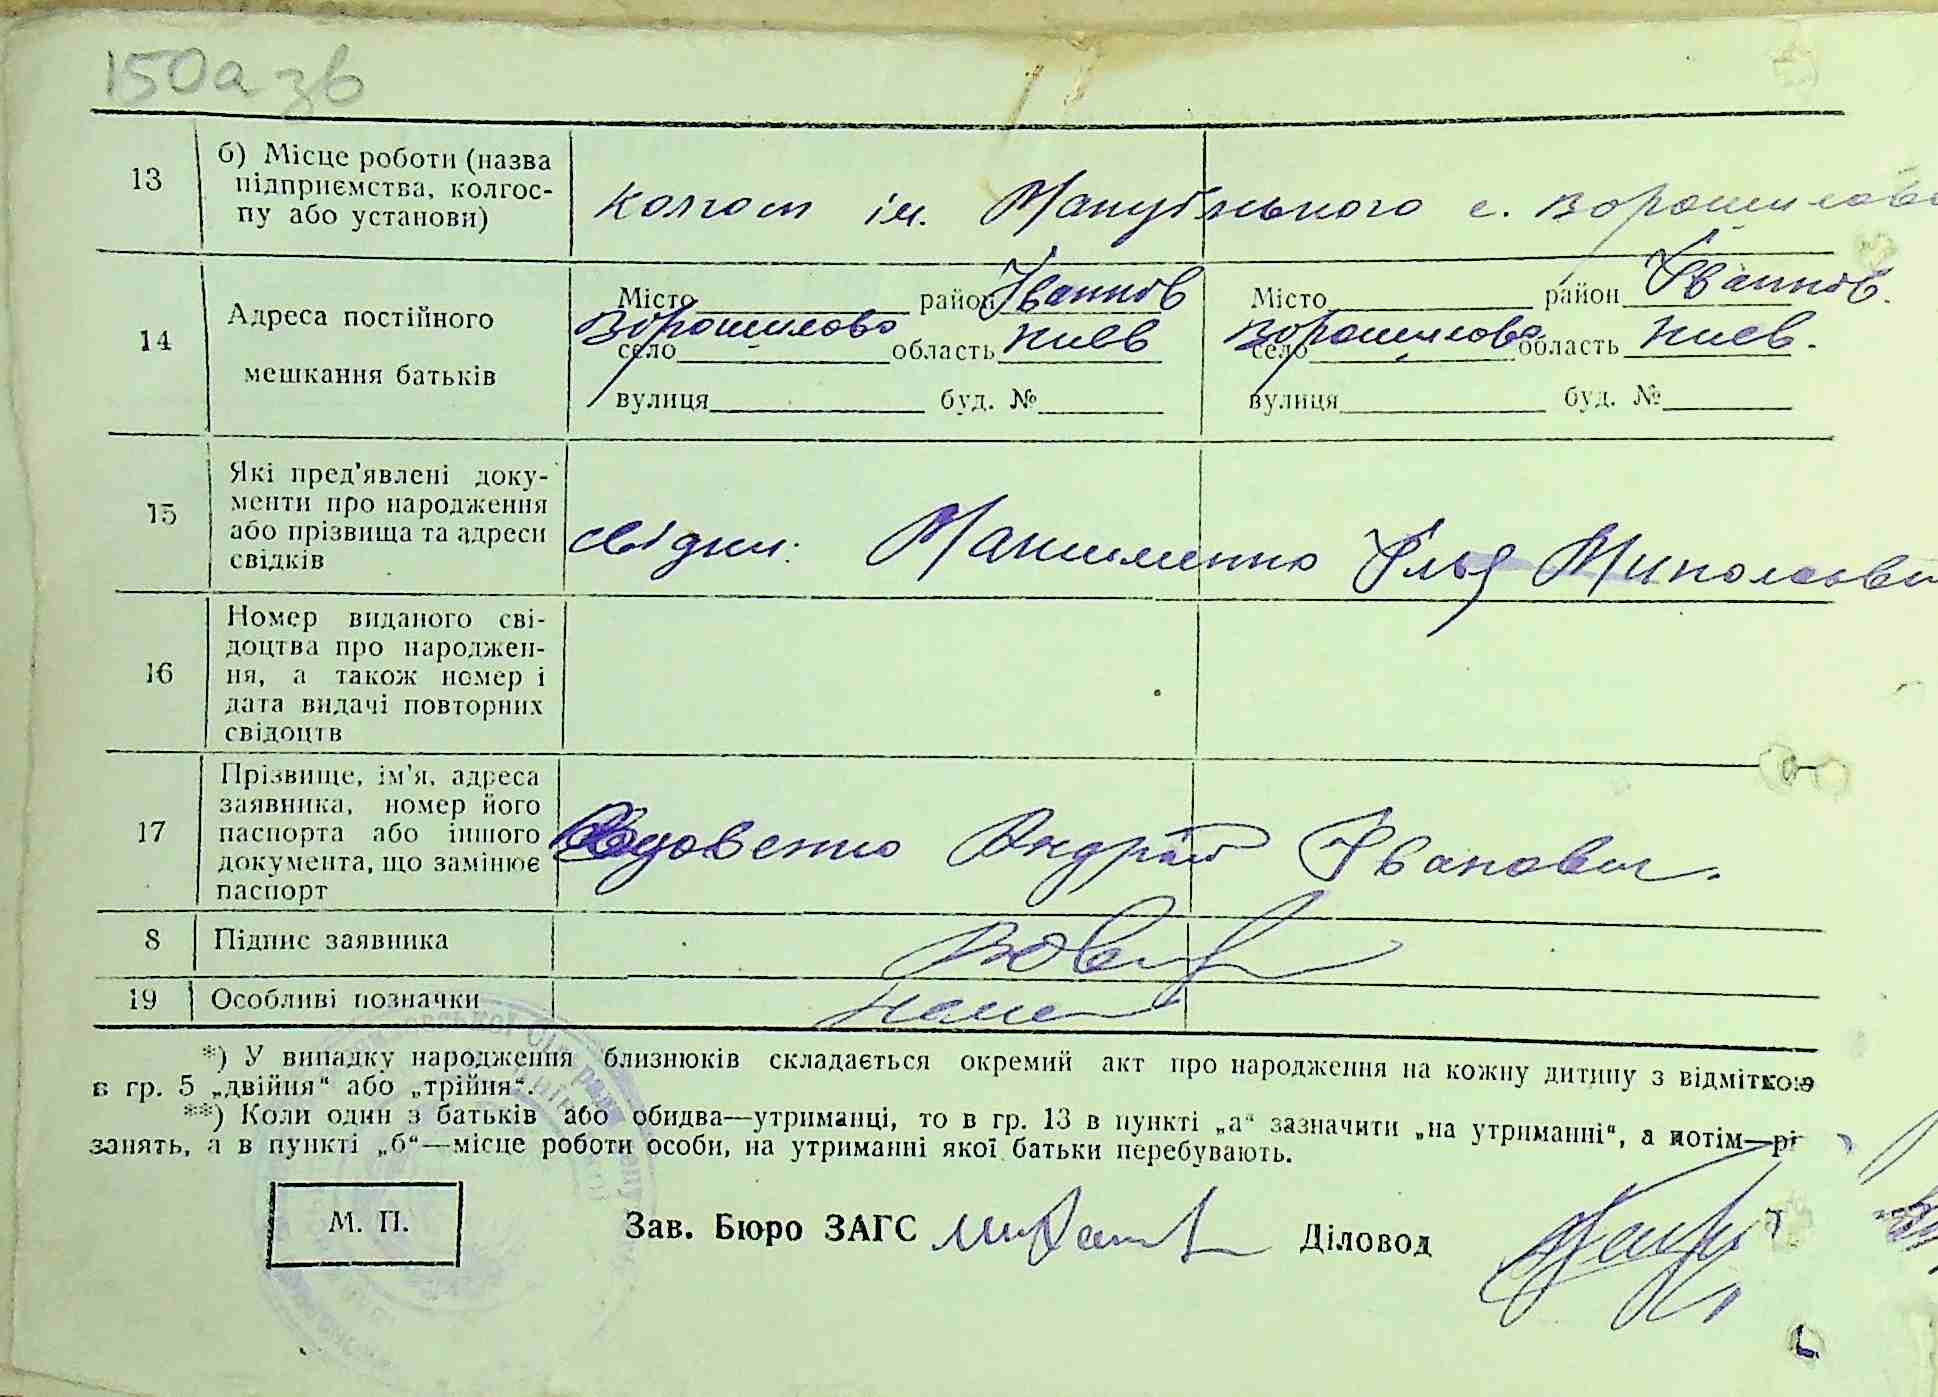 150а зв
13
б) Місце роботи (назва
підприємства, колгос-
пу або установи)
колгосп ім. Мануїльського с. Ворошилово
14
Адреса постійного
мешкання батьків
Місто район Іванків
Ворошилово
село область Київ
вулиця буд. №
Місто район Іванків.
Ворошилово
село область Київ.
вулиця буд. №
15
Які пред'явлені доку-
менти про народження
або прізвища та адреси
свідків
свідки: Макименко Ілья Миколаєви
16
Номер виданого сві-
доцтва про народжен-
ня, а також номер і
дата видачі повторних
свідоцтв
17
Прізвище, ім'я, адреса
заявника, номер його
паспорта або іншого
документа, що замінює
паспорт
Вдовенко Андрій Іванович.
8
Підпис заявника
19
Особливі позначки
*) У випадку народження близнюків складається окремий акт про народження на кожну дитину з відміткою
в гр. 5 „двійня“ або „трійня“.
**) Коли один з батьків або обидва—утриманці, то в гр. 13 в пункті „а“ зазначити „на утриманні“, а потім—рі
занять, а в пункті „б“—місце роботи особи, на утриманні якої батьки перебувають.
М. П.
Зав. Бюро ЗАГС
Діловод